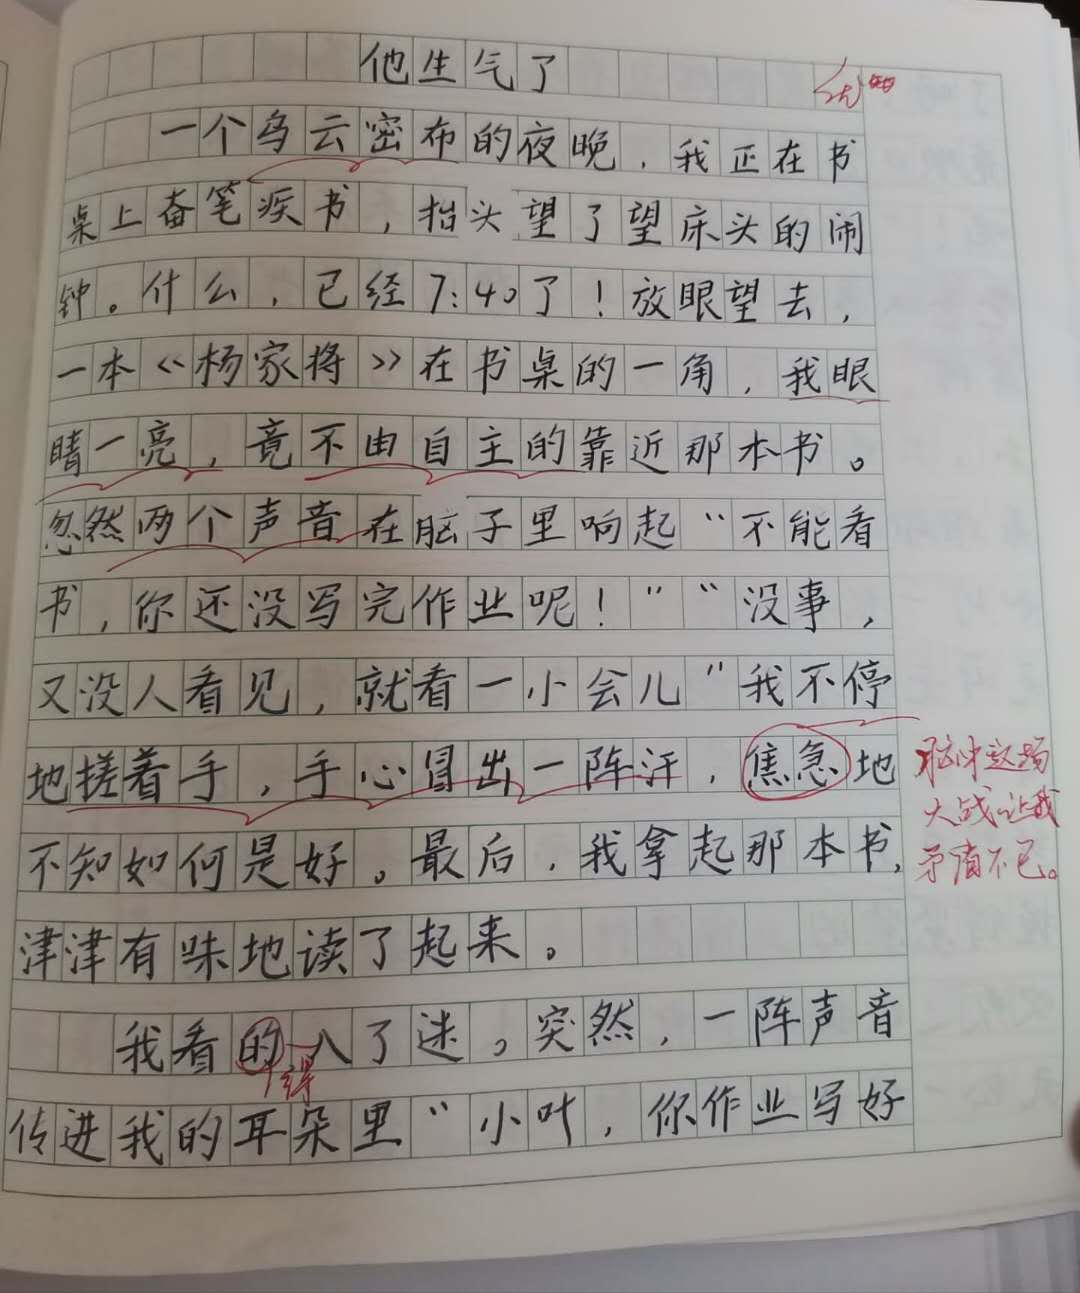 他生气了
一个乌云密布的夜晚，我正在书
桌上奋笔疾书，抬头望了望床头的闹
钟。什么，已经7:40了！放眼望去，
一本《杨家将》在书桌的一角，我眼
睛一亮，竟不由自主的靠近那本书。
忽然两个声音在脑子里响起“不能看
书，你还没写完作业呢！”“没事，
又没人看见，就看一小会儿”我不停
地搓着手，手心冒出一阵汗，焦急地
脑中这场
大战让我
矛盾不已。
不知如何是好。最后，我拿起那本书，
津津有味地读了起来。
我看的入了迷。突然，一阵声音
得
传进我的耳朵里“小叶，你作业写好